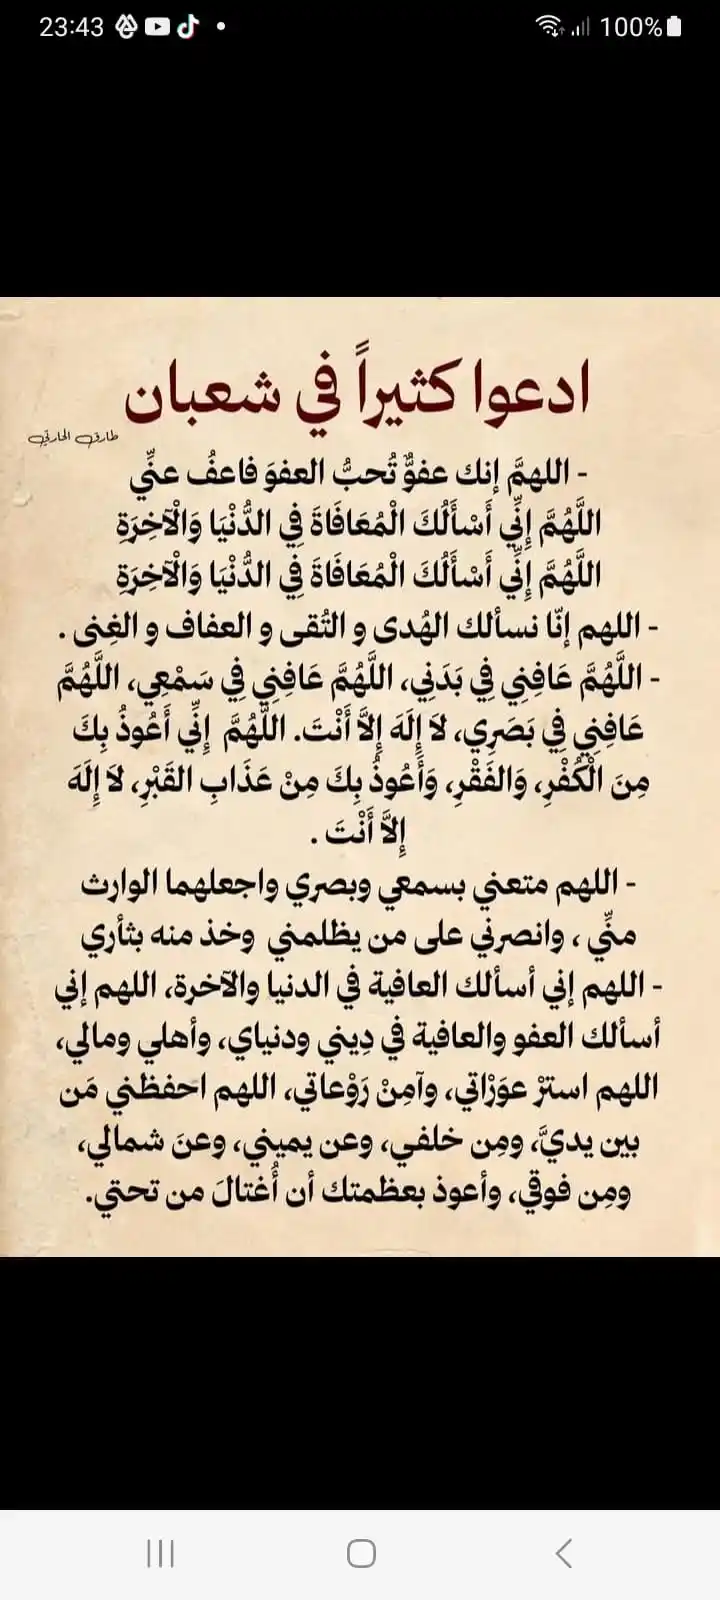 23:43
100%
ادعوا كثيراً في شعبان
طارق الحارثي
- اللهمَّ إنك عفوٌّ تُحبُّ العفوَ فاعفُ عنِّي
اللَّهُمَّ إِنِّي أَسْأَلُكَ الْمُعَافَاةَ فِي الدُّنْيَا وَالْآخِرَةِ
اللَّهُمَّ إِنِّي أَسْأَلُكَ الْمُعَافَاةَ فِي الدُّنْيَا وَالْآخِرَةِ
- اللهم إنّا نسألك الهُدى و التُقى و العفاف و الغِنى .
- اللَّهُمَّ عَافِنِي فِي بَدَنِي، اللَّهُمَّ عَافِنِي فِي سَمْعِي، اللَّهُمَّ
عَافِنِي فِي بَصَرِي، لاَ إِلَهَ إِلاَّ أَنْتَ. اللَّهُمَّ إِنِّي أَعُوذُ بِكَ
مِنَ الْكُفْرِ، وَالفَقْرِ، وَأَعُوذُ بِكَ مِنْ عَذَابِ القَبْرِ، لاَ إِلَهَ
إِلاَّ أَنْتَ .
- اللهم متعني بسمعي وبصري واجعلهما الوارث
منِّي ، وانصرني على من يظلمني وخذ منه بثأري
- اللهم إني أسألك العافية في الدنيا والآخرة، اللهم إني
أسألك العفو والعافية في دِيني ودنياي، وأهلي ومالي،
اللهم استرْ عوَرْاتي، وآمِنْ رَوْعاتي، اللهم احفظني مَن
بين يديَّ، ومِن خلفي، وعن يميني، وعنَ شمالي،
ومِن فوقي، وأعوذ بعظمتك أن أُغتالَ من تحتي.